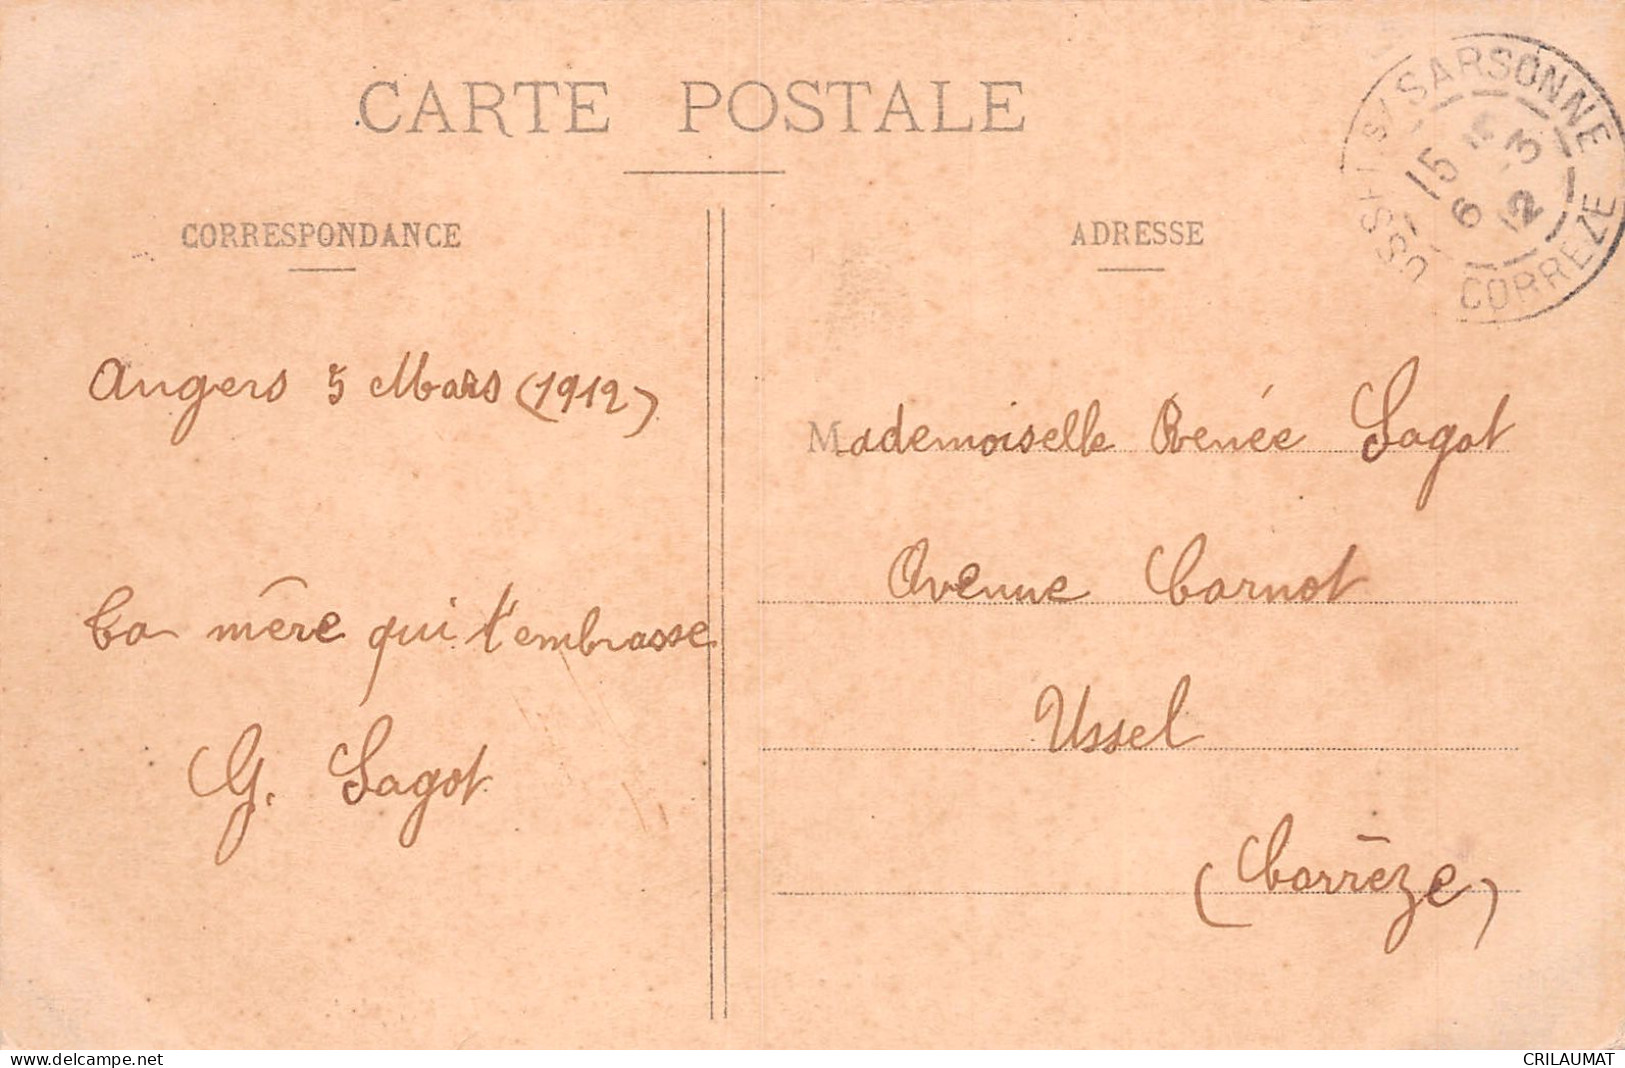 CARTE POSTALE
CORRESPONDANCE
ADRESSE
USSEL S/ SARSONNE
CORREZE
15
6 3
12
Angers 5 Mars (1912)
Ta mère qui t'embrasse
G. Sagot
Mademoiselle Renée Sagot
Avenue Carnot
Ussel
(Corrèze)
www.delcampe.net
CRILAUMAT